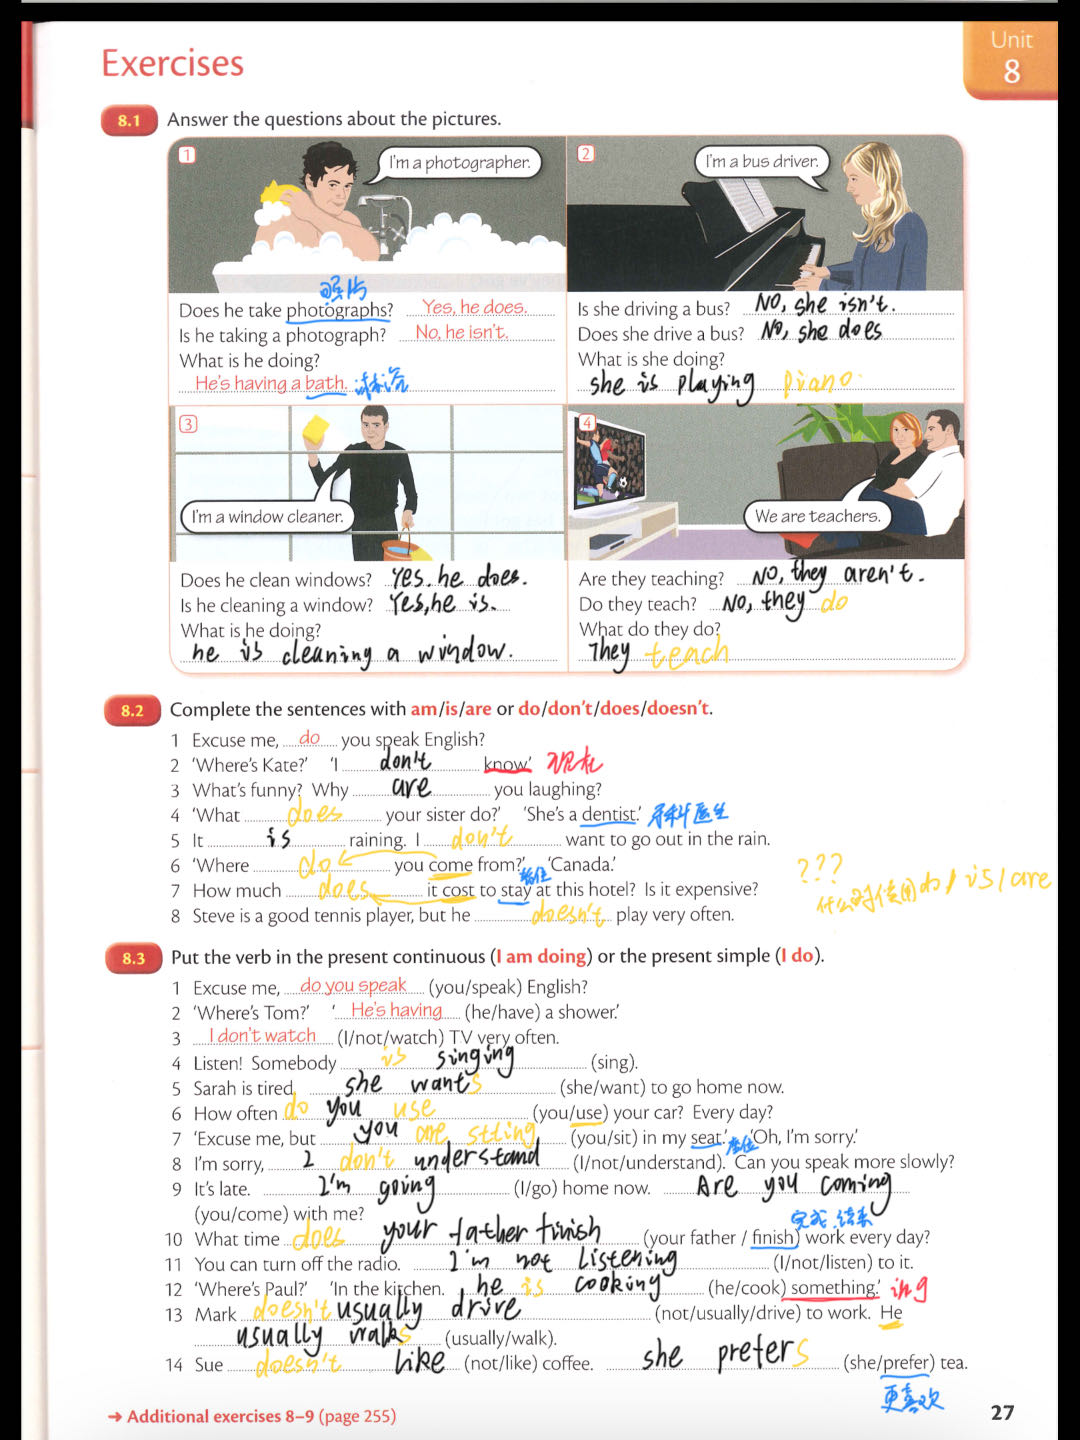 Exercises
Unit
8
8.1 Answer the questions about the pictures.
1
I'm a photographer.
照片
Does he take photographs? Yes, he does.
Is he taking a photograph? No, he isn't.
What is he doing?
He's having a bath.
2
I'm a bus driver.
Is she driving a bus? NO, she isn't.
Does she drive a bus? NO, she does
What is she doing?
she is playing piano.
3
I'm a window cleaner.
Does he clean windows? Yes. he does.
Is he cleaning a window? Yes, he is.
What is he doing?
he is cleaning a window.
4
We are teachers.
Are they teaching? NO, they aren't.
Do they teach? NO, they do
What do they do?
They teach
8.2 Complete the sentences with am/is/are or do/don't/does/doesn't.
1 Excuse me, do you speak English?
2 'Where's Kate?' 'I don't know.'
3 What's funny? Why are you laughing?
4 'What does your sister do?' 'She's a dentist.' 牙科医生
5 It is raining. I don't want to go out in the rain.
6 'Where do you come from?' 'Canada.'
暂住
7 How much does it cost to stay at this hotel? Is it expensive?
8 Steve is a good tennis player, but he doesn't play very often.
???
什么时候使用do / is / are
8.3 Put the verb in the present continuous (I am doing) or the present simple (I do).
1 Excuse me, do you speak (you/speak) English?
2 'Where's Tom?' 'He's having (he/have) a shower.'
3 I don't watch (I/not/watch) TV very often.
4 Listen! Somebody is singing (sing).
5 Sarah is tired. she wants (she/want) to go home now.
6 How often do you use (you/use) your car? Every day?
7 'Excuse me, but you are stting (you/sit) in my seat.' 座位 'Oh, I'm sorry.'
8 I'm sorry, I don't understand (I/not/understand). Can you speak more slowly?
9 It's late. I'm going (I/go) home now. Are you coming
(you/come) with me?
完成.结束
10 What time does your father finish (your father / finish) work every day?
11 You can turn off the radio. I'm not listening (I/not/listen) to it.
12 'Where's Paul?' 'In the kitchen. he is cooking (he/cook) something.' ing
13 Mark doesn't usually drive (not/usually/drive) to work. He
usually walks (usually/walk).
14 Sue doesn't like (not/like) coffee. she prefers (she/prefer) tea.
更喜欢
➜ Additional exercises 8–9 (page 255)
27